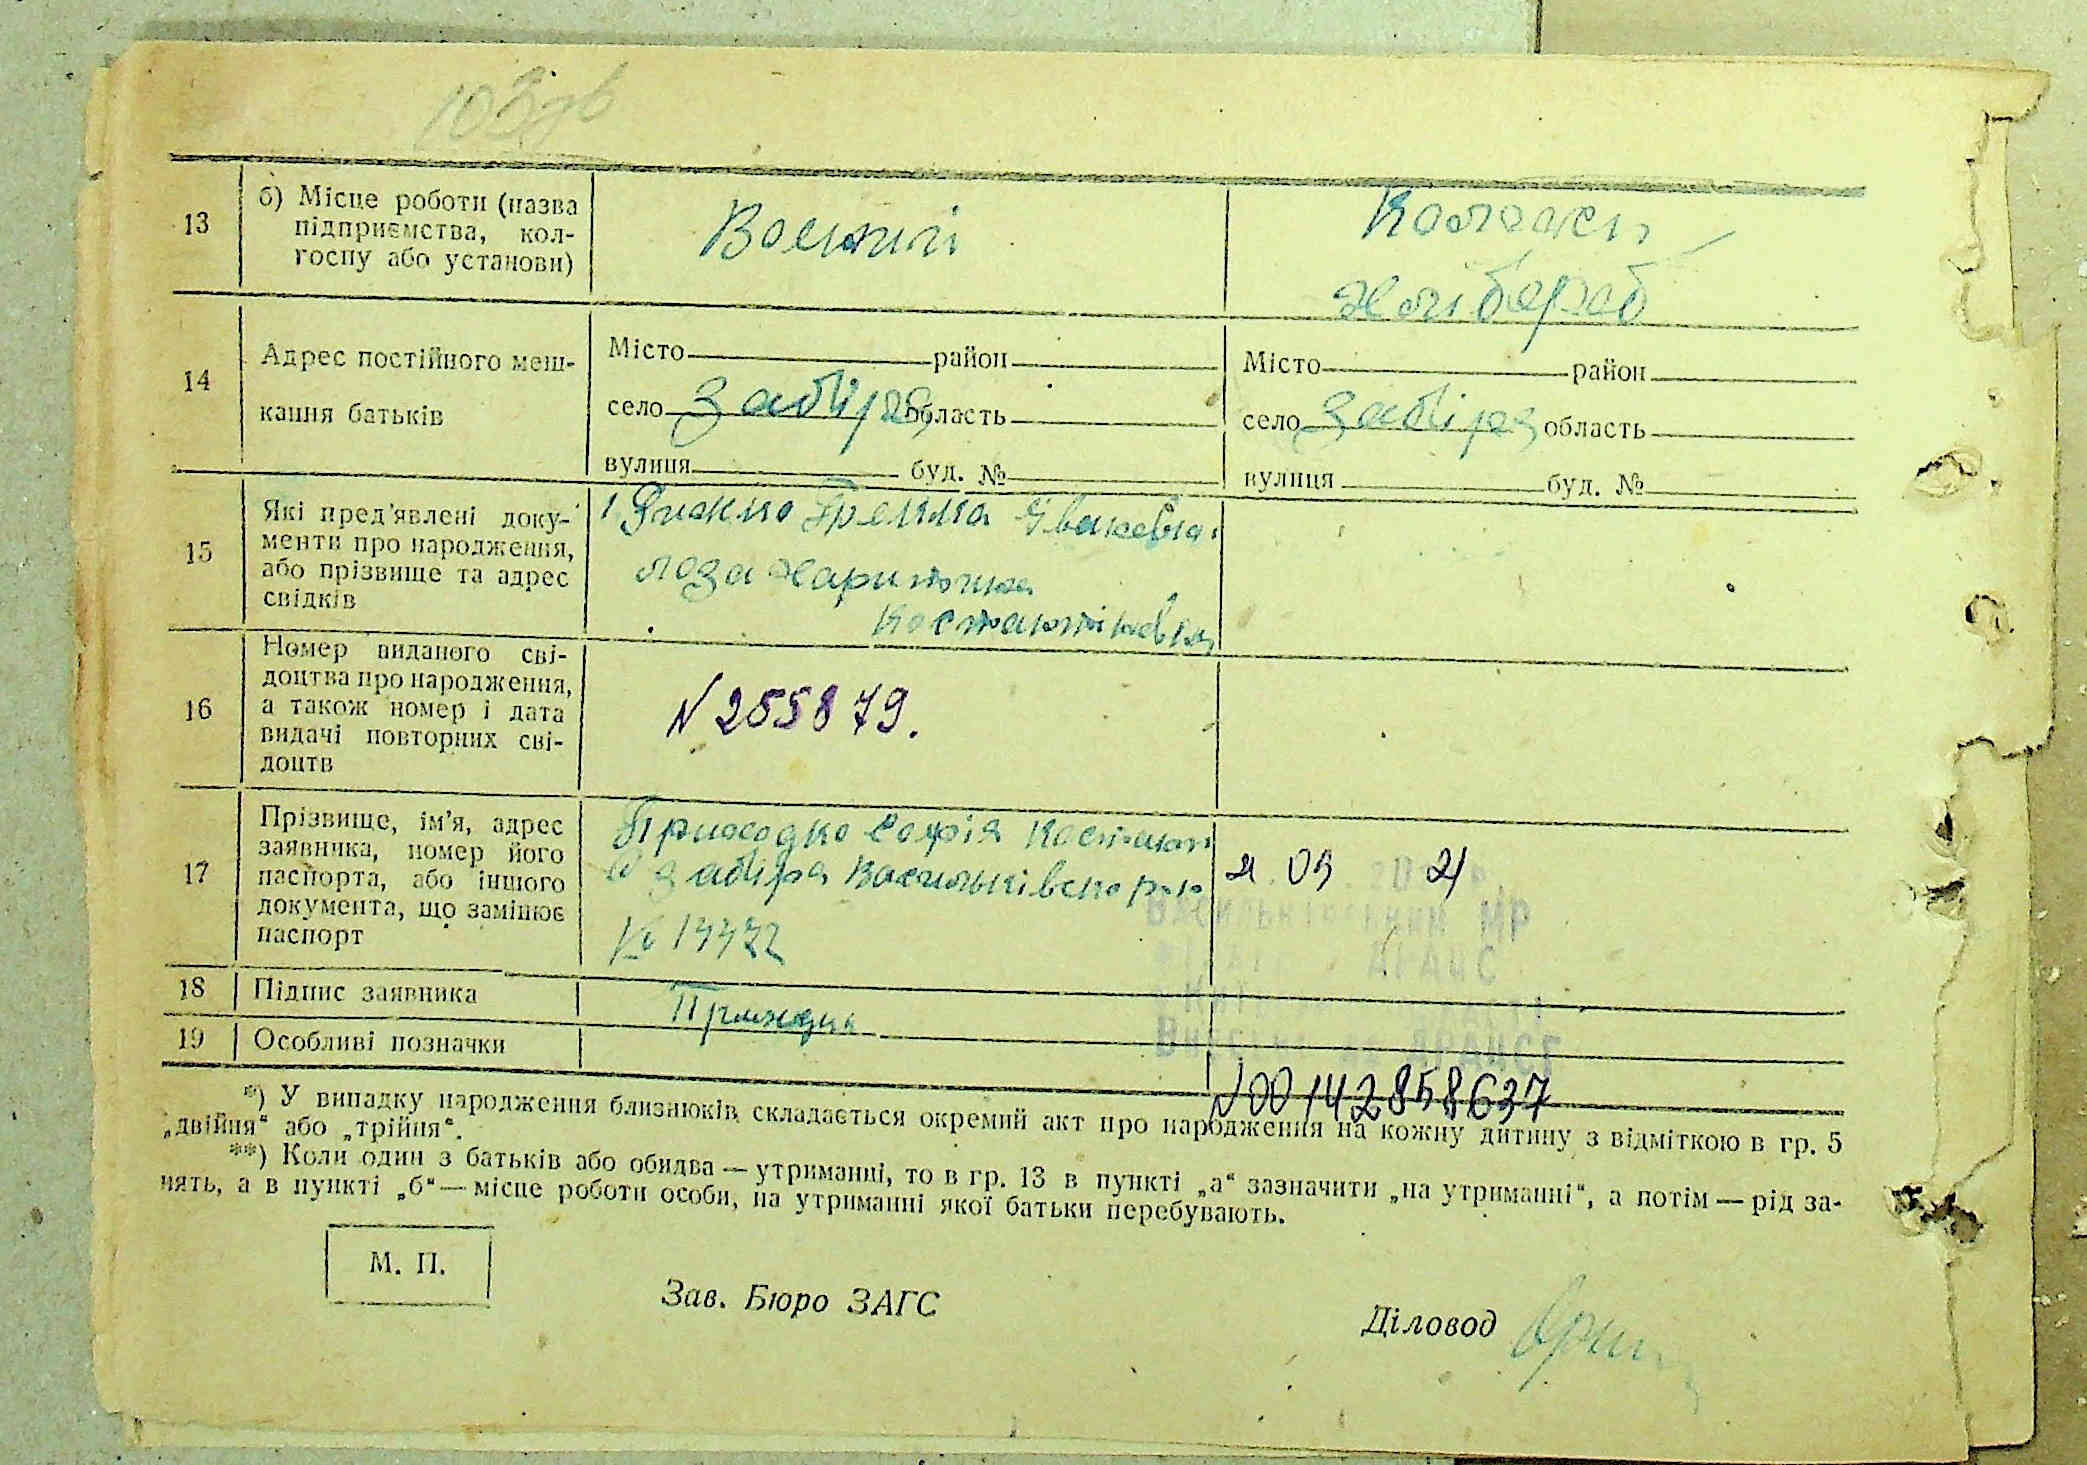 13
б) Місце роботи (назва
підприємства, кол-
госпу або установи)
Воєнний
14
Адрес постійного меш-
кання батьків
Місто район
село Забіря область
вулиця буд. №
Місто район
село Забіря область
вулиця буд. №
15
Які пред'явлені доку-
менти про народження,
або прізвище та адрес
свідків
1
Лоза Харитина
Костантінівна
16
Номер виданого сві-
доцтва про народження,
а також номер і дата
видачі повторних сві-
доцтв
N 255879.
17
Прізвище, ім'я, адрес
заявника, номер його
паспорта, або іншого
документа, що замінює
паспорт
Приходко Софія Костант
Забіря Васильківского р-ну
21 . 09 . 20 21
Васильківський МР
ДРАЦС
Внесено до ДРАЦСГ
18
Підпис заявника
Приходко
19
Особливі позначки
N00142858637
*) У випадку народження близнюків складається окремий акт про народження на кожну дитину з відміткою в гр. 5
„двійня“ або „трійня“.
**) Коли один з батьків або обидва — утриманці, то в гр. 13 в пункті „а“ зазначити „на утриманні“, а потім — рід за-
нять, а в пункті „б“ — місце роботи особи, на утриманні якої батьки перебувають.
М. П.
Зав. Бюро ЗАГС
Діловод